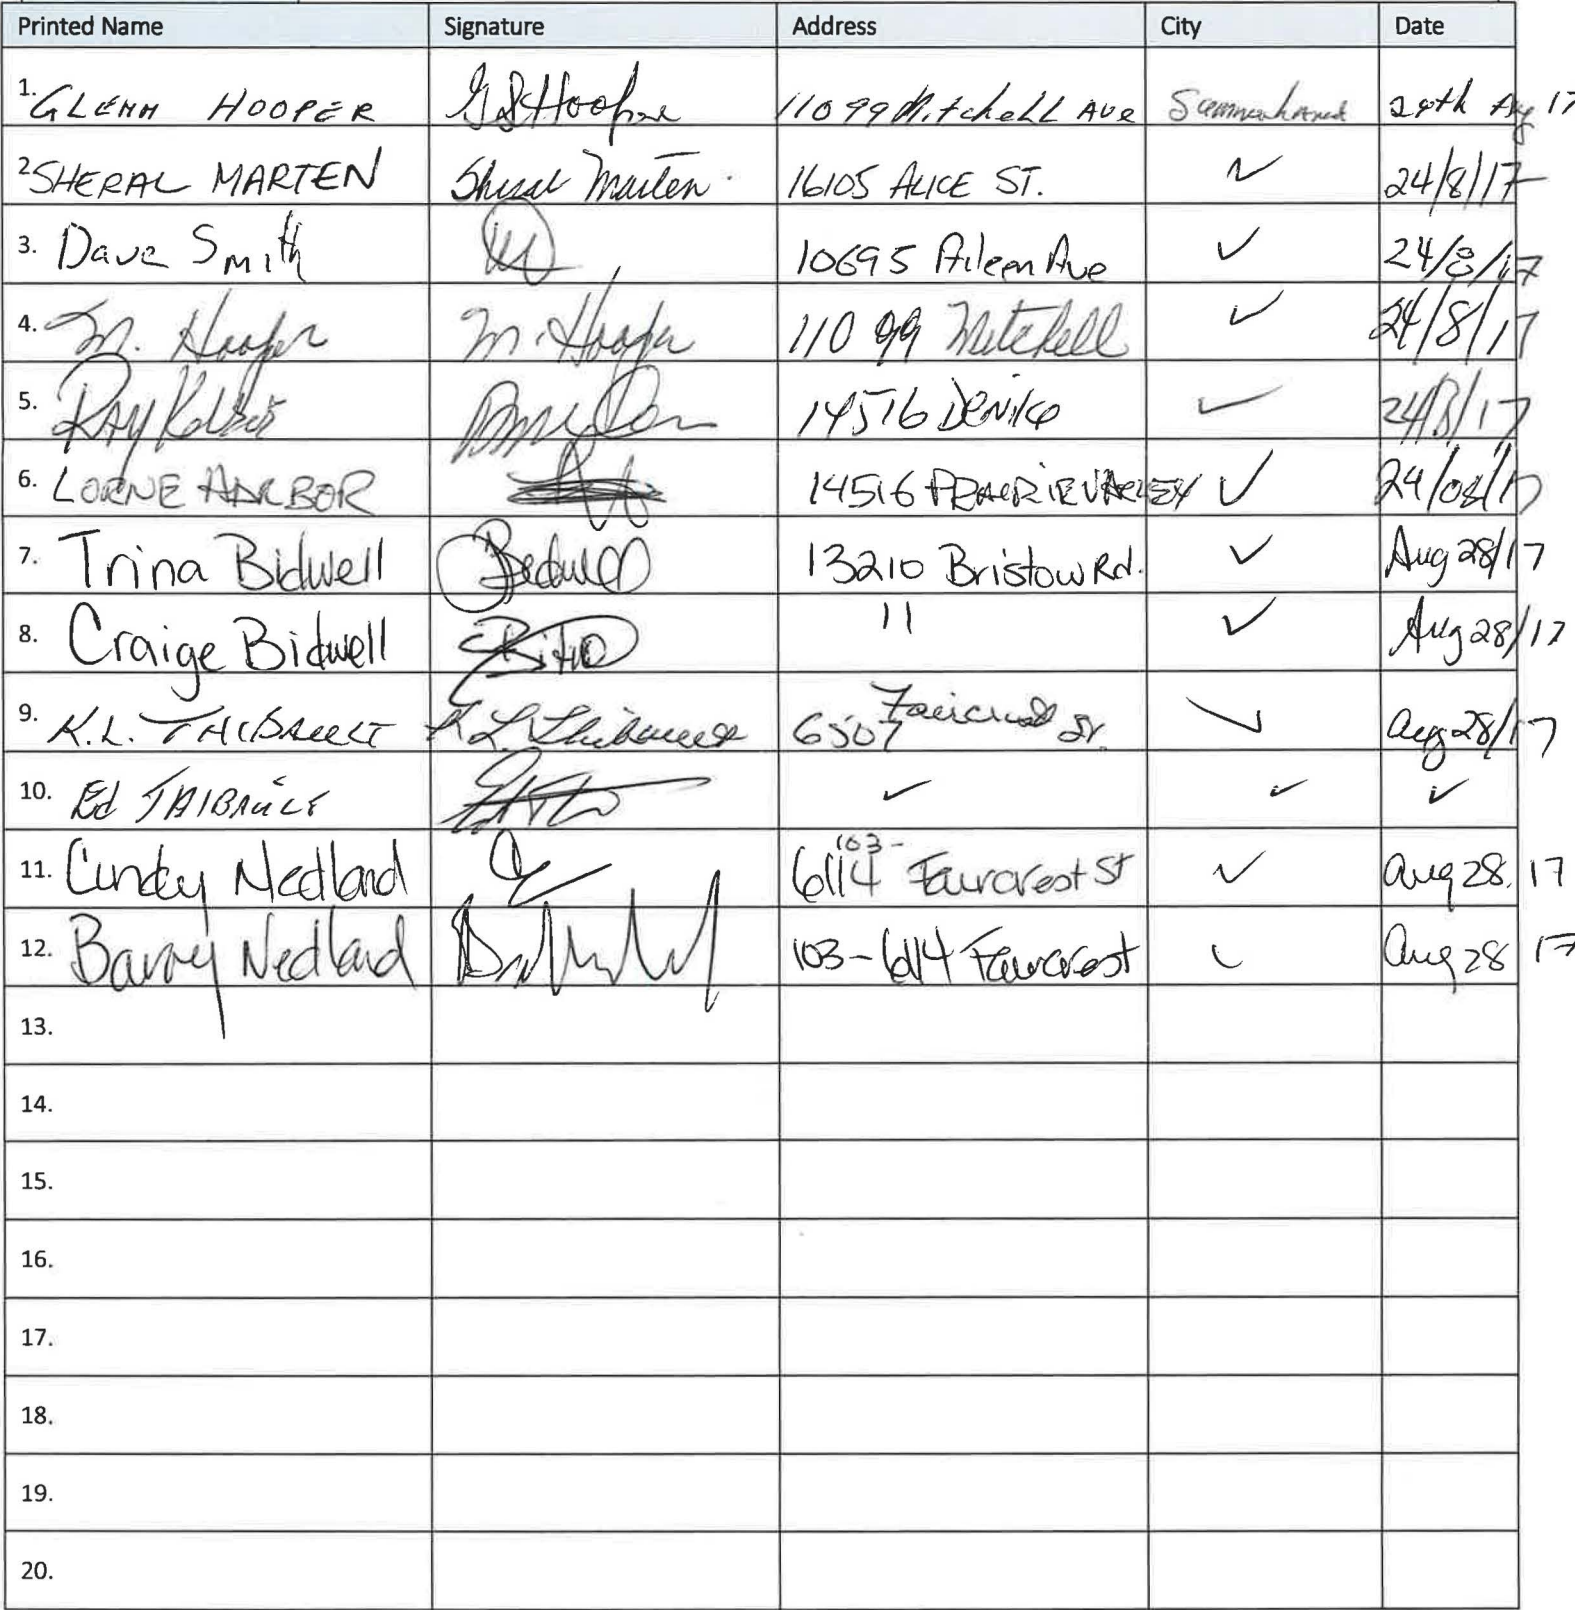 Printed Name Signature Address City Date
1. GLENN HOOPER G S Hooper 11099 Mitchell AVE Summerland 24th Aug 17
2. SHERAL MARTEN Sheral Marten 16105 ALICE ST. ✓ 24/8/17
3. Dave Smith 10695 Aileen Ave ✓ 24/8/17
4. M. Hooper M. Hooper 11099 Mitchell ✓ 24/8/17
5. RAY 14516 ✓ 24/8/17
6. LORNE 14516 PRAIRIE VALLEY ✓ 24/08/17
7. Trina Bidwell Bidwell 13210 Bristow Rd. ✓ Aug 28/17
8. Craige Bidwell 11 ✓ Aug 28/17
9. K.L. THIBAULT K L Thibault 6507 Faircrest St. ✓ Aug 28/17
10. Ed THIBAULT ✓ ✓ ✓
11. Cindy Nedland 103-6114 Faircrest St ✓ Aug 28. 17
12. Barry Nedland 103-6114 Faircrest ✓ Aug 28 17
13.
14.
15.
16.
17.
18.
19.
20.